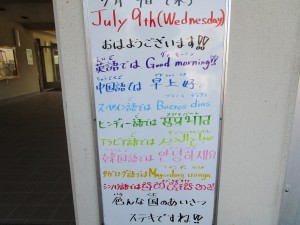 July 9th(Wednesday)
おはようございます!!
英語では Good morning!!
中国語では 早上好。
スペイン語では Buenos dias
ヒンディー語では सुप्रभात
アラビア語では
韓国語では 안녕하세요
タガログ語では Magandang umaga
シンハラ語では
色んな国のあいさつ
ステキですね!!